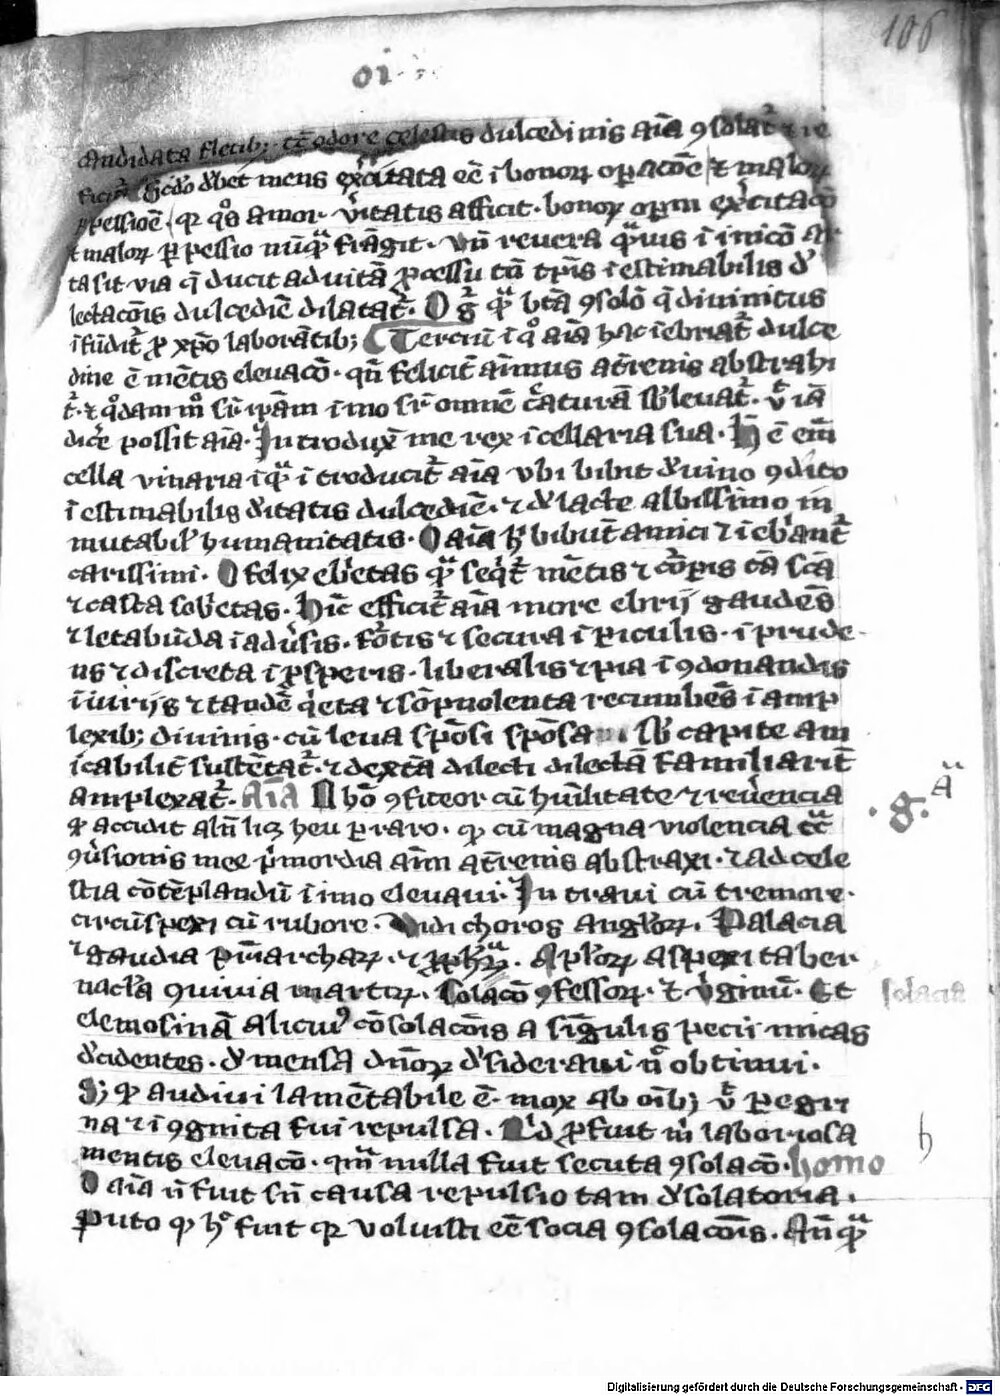 106
oi
candidata fletib; · tc̄ odore celestis dulcedinis aīa ꝯsolat᷑ ⁊ re
ficit᷑ Scd̄o dʼbet mens excitata eē ī bonoꝝ opac̄oe ⁊ maloꝝ
ꝑpessiōe · qꝛ qͦs amor vʼitatis afficit · bonoꝝ opm̄ excitac̄o
⁊ maloꝝ ꝑpessio nūqͣ frāgit · vn̄ revera qͣuis ī inic̄o ar
ta sit via q̄ ducit ad vitā ꝓcessu tn̄ tp̄is īestimabilis dʼ
lectac̄ois dulcediē dilatat᷑ · O gͦ qͣ btā ꝯsol̄o q̄ divinitus
ifūdit᷑ ꝓ xp̄o laborātib; Terciū ī qͦ aīa hac īebriat᷑ dulce
dine ē mētis elevac̄o · qn̄ felicit᷑ aīmus at᷑renis abstrahi
t᷑ · ⁊ qͦdam mͦ sū ip̄am īmo sū omnē cͣaturā sbʼlevat᷑ · vͭ īā
dicē possit aīa · Introdux̄ me rex ī cellaria sua · H̄ ē em̄
cella vinaria ī qͣ īntroducit᷑ aīa vbi bibit dʼvino ꝯdito
īestimabilis dʼitatis dulcediē · ⁊ dʼ lacte albissimo in
mutabilʼ humanitatis · O aīa h̄ bibūt amici ⁊ īebʼant᷑
carissimi · O felix ebʼetas qͣ seqͥt᷑ mētis ⁊ corꝑis tā sc̄a
⁊ casta sobʼetas · Hic̄ efficit᷑ aīa more ebrij gaudēs
⁊ letabūda ī adūsis · fortis ⁊ secura ī ꝑiculis · ī prude
ns ⁊ discreta ī ꝓsperis · liberalis ⁊ pia ī ꝯdonandis
īiurijs ⁊ tandē qͥeta ⁊ sōpnolenta recumbēs ī amp
lexib; divinis · cū leva spōsi spōsa sbʼ capite am
icabilit᷑ sustētat᷑ · ⁊ dext̄a dilecti dilectā familiarit᷑
amplexat᷑ · Aīa Ab̄o ꝯfiteor cū hūilitate ⁊ revʼencia
qͥ accidit alīi lic; heu ꝑraro · qͥ cū magna violencia cͨ
ꝯūsionis mee pʼmordia aīm at᷑renis abstraxi · ⁊ ad cele
stia cōtēplandū īimo elevavi · Intravi cū tremore ·
circūspexi cū rubore · Vidi choros anglʼoꝝ · Palacia
⁊ gaudia pr̄iarchaꝝ · ⁊ ꝓphaꝝ · Aplʼoꝝ aspexi taber
naclʼa ꝯvivia martꝝ · Solac̄o ꝯfessoꝝ · ⁊ vʼginū · Et
elemosinā alicuiꝰ cōsolac̄ois a singulis pecii micas
dʼcidentes · dʼ mensa dn̄oꝝ dʼsideravi n̄ obtinui ·
S; qͥ audivi lamētabile ē · mox ab oīb; vͭ ꝑegri
na ⁊ īꝯgnita fui repulsa · Qͥd ꝓfuit m̄ laboriosa
mentis elevac̄o · qm̄ nulla fuit secuta ꝯsolac̄o · homo
O aīa n̄ fuit sn̄ causa repulsio tam dʼsolatoria ·
Puto qͥ hͦ fuit qꝛ voluisti eē socia ꝯsolac̄ois · An̄qͣ
· g · a
solacia
h
Digitalisierung gefördert durch die Deutsche Forschungsgemeinschaft - DFG